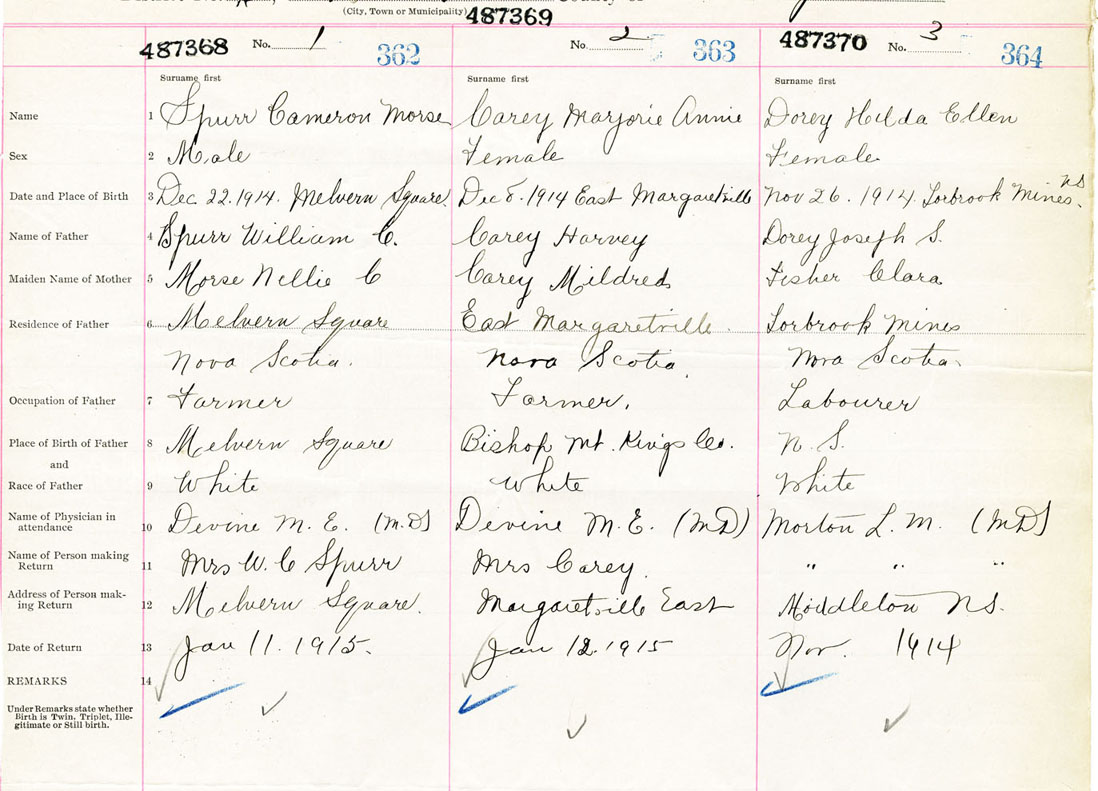 (City, Town or Municipality) 487369
487368 No. 1 362 No. 2 363 487370 No. 3 364
Surname first Surname first Surname first
Name 1 Spurr Cameron Morse Carey Marjorie Annie Dorey Hilda Ellen
Sex 2 Male Female Female
NS
Date and Place of Birth 3 Dec 22.1914. Melvern Square. Dec 8. 1914 East Margaretville Nov 26. 1914. Torbrook Mines.
Name of Father 4 Spurr William C. Carey Harvey Dorey Joseph S.
Maiden Name of Mother 5 Morse Nellie C Carey Mildred Fisher Clara
Residence of Father 6 Melvern Square East Margaretville. Torbrook Mines
Nova Scotia. Nova Scotia. Nova Scotia.
Occupation of Father 7 Farmer Farmer. Labourer
Place of Birth of Father 8 Melvern Square Bishop Mt. Kings Co. N. S.
and
Race of Father 9 White White White
Name of Physician in
attendance 10 Devine M. E. (M.D) Devine M.E. (MD) Morton L. M. (MD)
Name of Person making
Return 11 Mrs W. C Spurr Mrs Carey. " " "
Address of Person mak-
ing Return 12 Melvern Square. Margaretville East Middleton NS.
Date of Return 13 Jan 11. 1915. Jan 12. 1915 Nov. 1914
REMARKS 14
Under Remarks state whether
Birth is Twin, Triplet, Ille-
gitimate or Still birth.